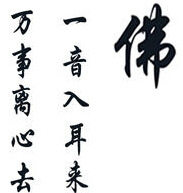 佛
一音入耳来
万事离心去